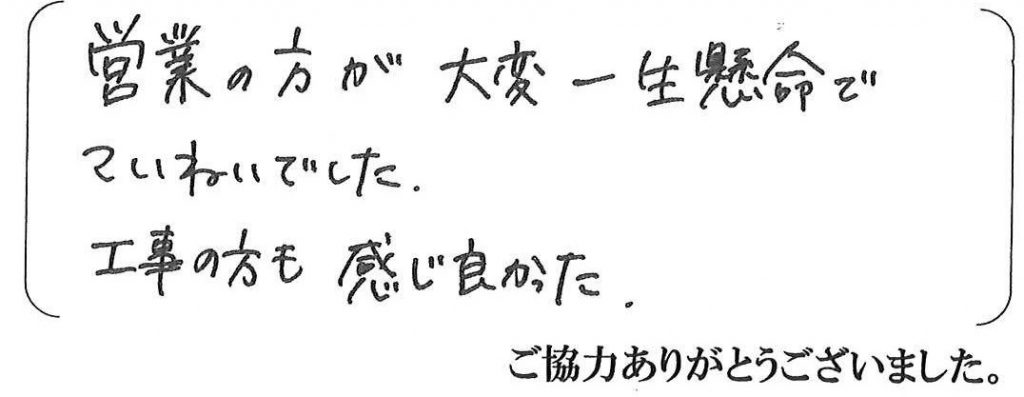 営業の方が 大変一生懸命で
ていねいでした.
工事の方も 感じ良かった.
ご協力ありがとうございました。